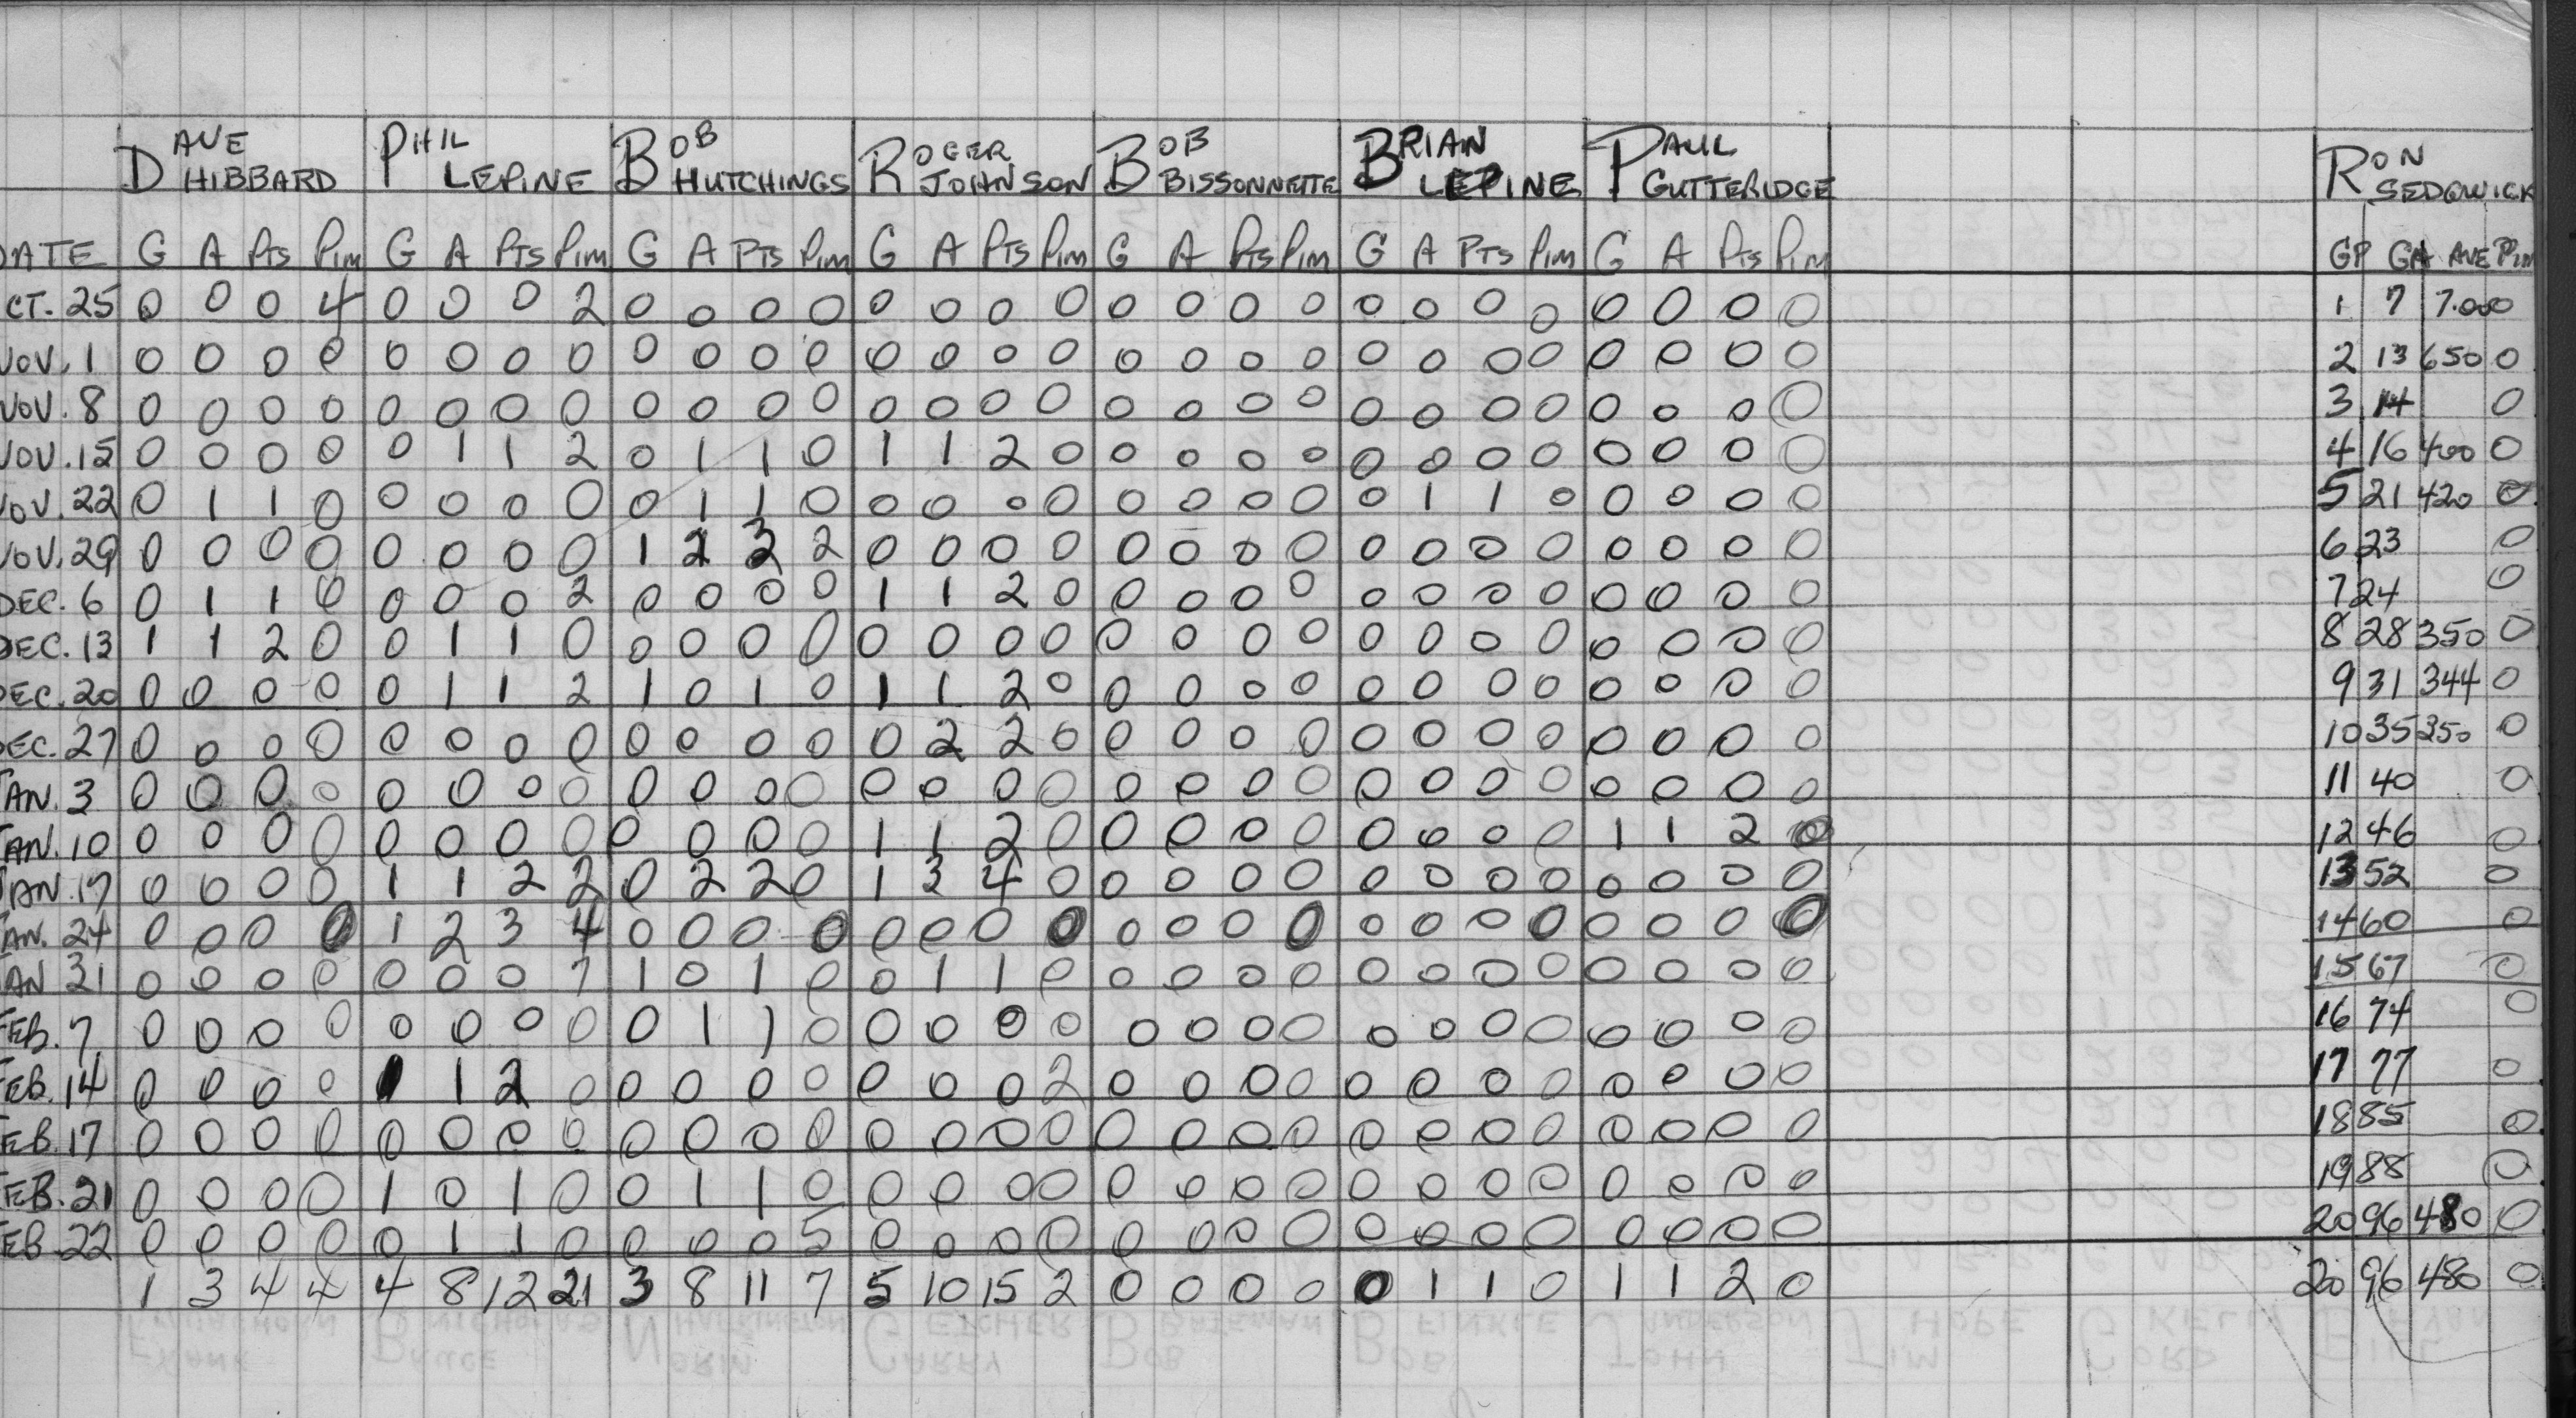 DAVE HIBBARD PHIL LEPINE BOB HUTCHINGS ROGER JOHNSON BOB BISSONNETTE BRIAN LEPINE PAUL GUTTERIDGE RON SEDGWICK
DATE G A Pts Pim G A PTS Pim G A PTS Pim G A PTS Pim G A Pts Pim G A PTS Pim G A Pts Pim GP GA AVE Pim
CT. 25 0 0 0 4 0 0 0 2 0 0 0 0 0 0 0 0 0 0 0 0 0 0 0 0 0 0 0 0 1 7 7.000
NOV. 1 0 0 0 0 0 0 0 0 0 0 0 0 0 0 0 0 0 0 0 0 0 0 0 0 0 0 0 0 2 13 650 0
NOV. 8 0 0 0 0 0 0 0 0 0 0 0 0 0 0 0 0 0 0 0 0 0 0 0 0 0 0 0 0 3 14 0
NOV. 15 0 0 0 0 0 1 1 2 0 1 1 0 1 1 2 0 0 0 0 0 0 0 0 0 0 0 0 0 4 16 400 0
NOV. 22 0 1 1 0 0 0 0 0 0 1 1 0 0 0 0 0 0 0 0 0 0 1 1 0 0 0 0 0 5 21 420 0
NOV. 29 0 0 0 0 0 0 0 0 1 2 3 2 0 0 0 0 0 0 0 0 0 0 0 0 0 0 0 0 6 23 0
DEC. 6 0 1 1 0 0 0 0 2 0 0 0 0 1 1 2 0 0 0 0 0 0 0 0 0 0 0 0 0 7 24 0
DEC. 13 1 1 2 0 0 1 1 0 0 0 0 0 0 0 0 0 0 0 0 0 0 0 0 0 0 0 0 0 8 28 350 0
DEC. 20 0 0 0 0 0 1 1 2 1 0 1 0 1 1 2 0 0 0 0 0 0 0 0 0 0 0 0 0 9 31 344 0
DEC. 27 0 0 0 0 0 0 0 0 0 0 0 0 0 2 2 0 0 0 0 0 0 0 0 0 0 0 0 0 10 35 350 0
JAN. 3 0 0 0 0 0 0 0 0 0 0 0 0 0 0 0 0 0 0 0 0 0 0 0 0 0 0 0 0 11 40 0
JAN. 10 0 0 0 0 0 0 0 0 0 0 0 0 1 1 2 0 0 0 0 0 0 0 0 0 1 1 2 0 12 46 0
JAN. 17 0 0 0 0 1 1 2 2 0 2 2 0 1 3 4 0 0 0 0 0 0 0 0 0 0 0 0 0 13 52 0
JAN. 24 0 0 0 0 1 2 3 4 0 0 0 0 0 0 0 0 0 0 0 0 0 0 0 0 0 0 0 0 14 60 0
JAN 31 0 0 0 0 0 0 0 7 1 0 1 0 0 1 1 0 0 0 0 0 0 0 0 0 0 0 0 0 15 67 0
FEB. 7 0 0 0 0 0 0 0 0 0 1 1 0 0 0 0 0 0 0 0 0 0 0 0 0 0 0 0 0 16 74 0
FEB. 14 0 0 0 0 1 1 2 0 0 0 0 0 0 0 0 2 0 0 0 0 0 0 0 0 0 0 0 0 17 77 0
FEB. 17 0 0 0 0 0 0 0 0 0 0 0 0 0 0 0 0 0 0 0 0 0 0 0 0 0 0 0 0 18 85 0
FEB. 21 0 0 0 0 1 0 1 0 0 1 1 0 0 0 0 0 0 0 0 0 0 0 0 0 0 0 0 0 19 88 0
FEB. 22 0 0 0 0 0 1 1 0 0 0 0 5 0 0 0 0 0 0 0 0 0 0 0 0 0 0 0 0 20 96 480 0
1 3 4 4 4 8 12 21 3 8 11 7 5 10 15 2 0 0 0 0 0 1 1 0 1 1 2 0 20 96 480 0